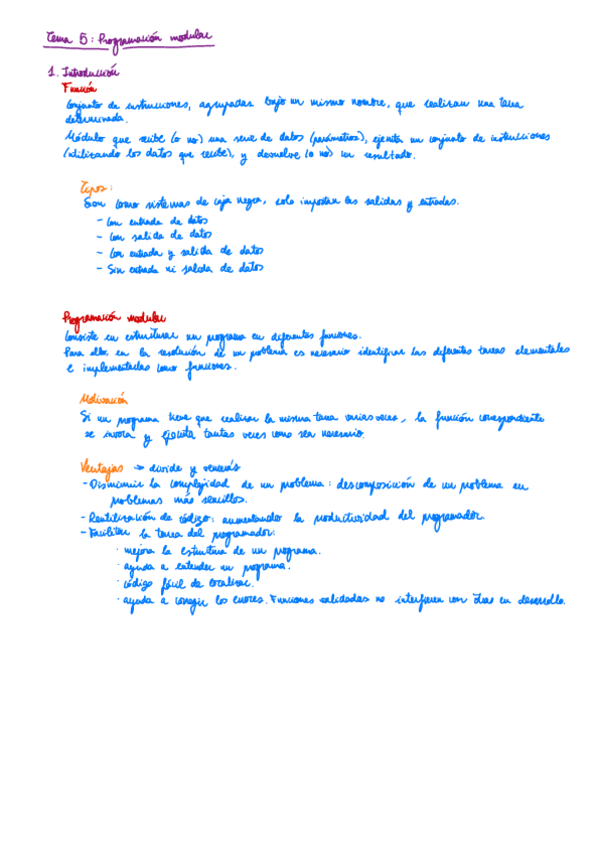 Tema 5: Programación modular
1. Introducción
Función
Conjunto de instrucciones, agrupadas bajo un mismo nombre, que realizan una tarea
determinada.
Módulo que recibe (o no) una serie de datos (parámetros), ejecuta un conjunto de instrucciones
(utilizando los datos que recibe), y devuelve (o no) un resultado.
Tipos:
Son como sistemas de caja negra, solo importan las salidas y entradas.
- Con entrada de datos
- Con salida de datos
- Con entrada y salida de datos
- Sin entrada ni salida de datos
Programación modular
Consiste en estructurar un programa en diferentes funciones.
Para ello, en la resolución de un problema es necesario identificar las diferentes tareas elementales
e implementarlas como funciones.
Motivación
Si un programa tiene que realizar la misma tarea varias veces, la función correspondiente
se invoca y ejecuta tantas veces como sea necesario.
Ventajas → divide y vencerás
- Disminuir la complejidad de un problema: descomposición de un problema en
problemas más sencillos.
- Reutilización de código: aumentando la productividad del programador.
- Facilitar la tarea del programador:
· mejora la estructura de un programa.
· ayuda a entender un programa.
· código fácil de localizar.
· ayuda a corregir los errores. Funciones validadas no interfieren con otras en desarrollo.